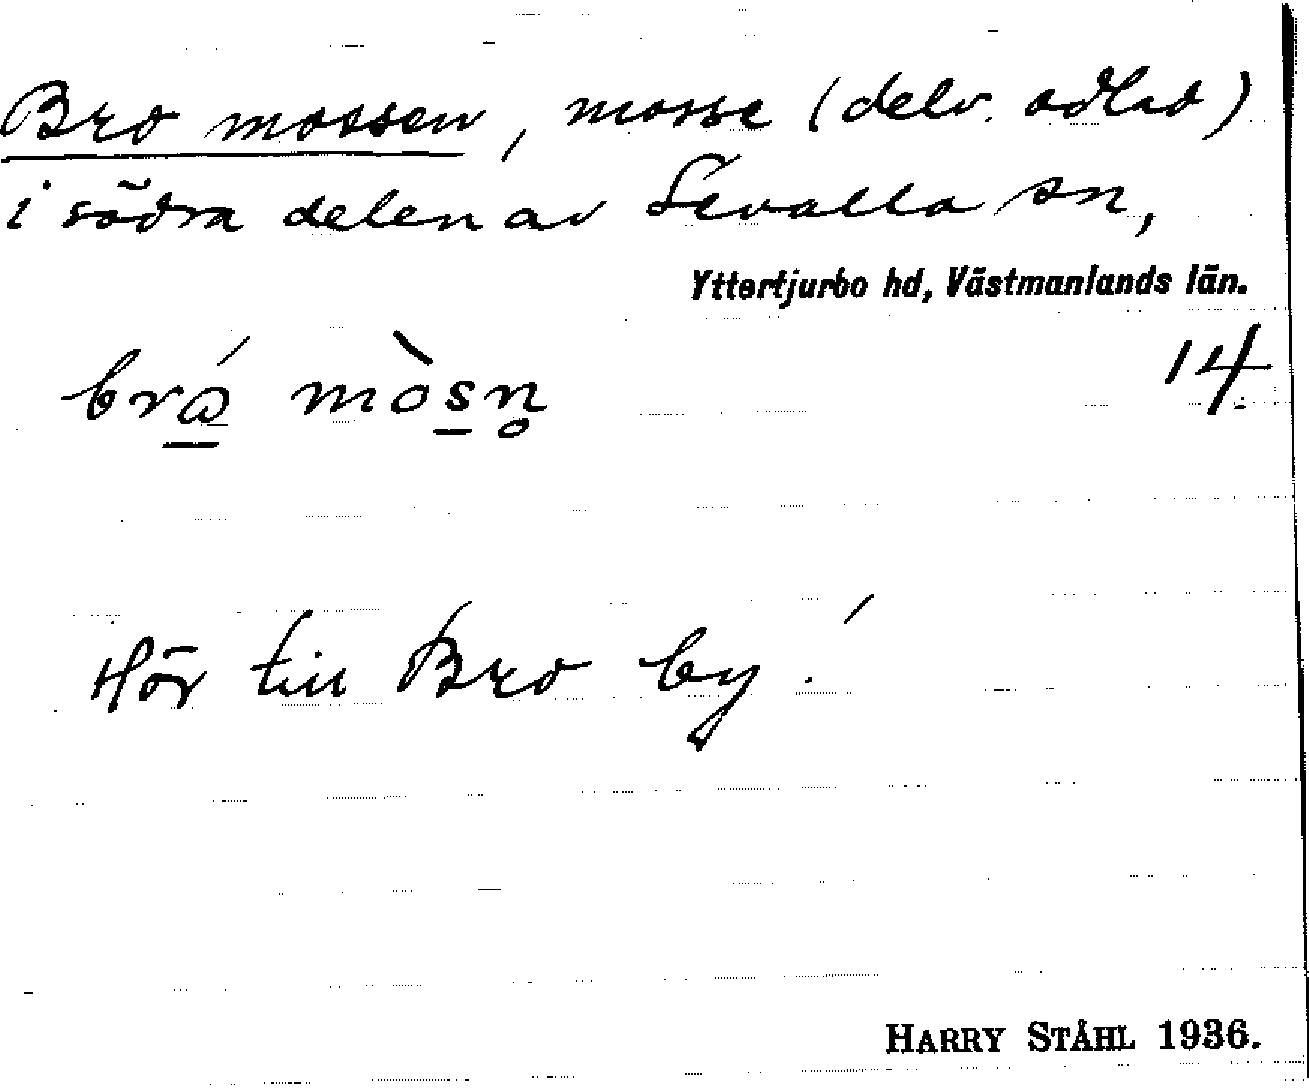 Bro mossen, mosse (delv. odlad)
i södra delen av Sevalla sn,
Yttertjurbo hd, Västmanlands län.
brá mòsn̥
14
Hör till Bro by!
HARRY STÅHL 1936.